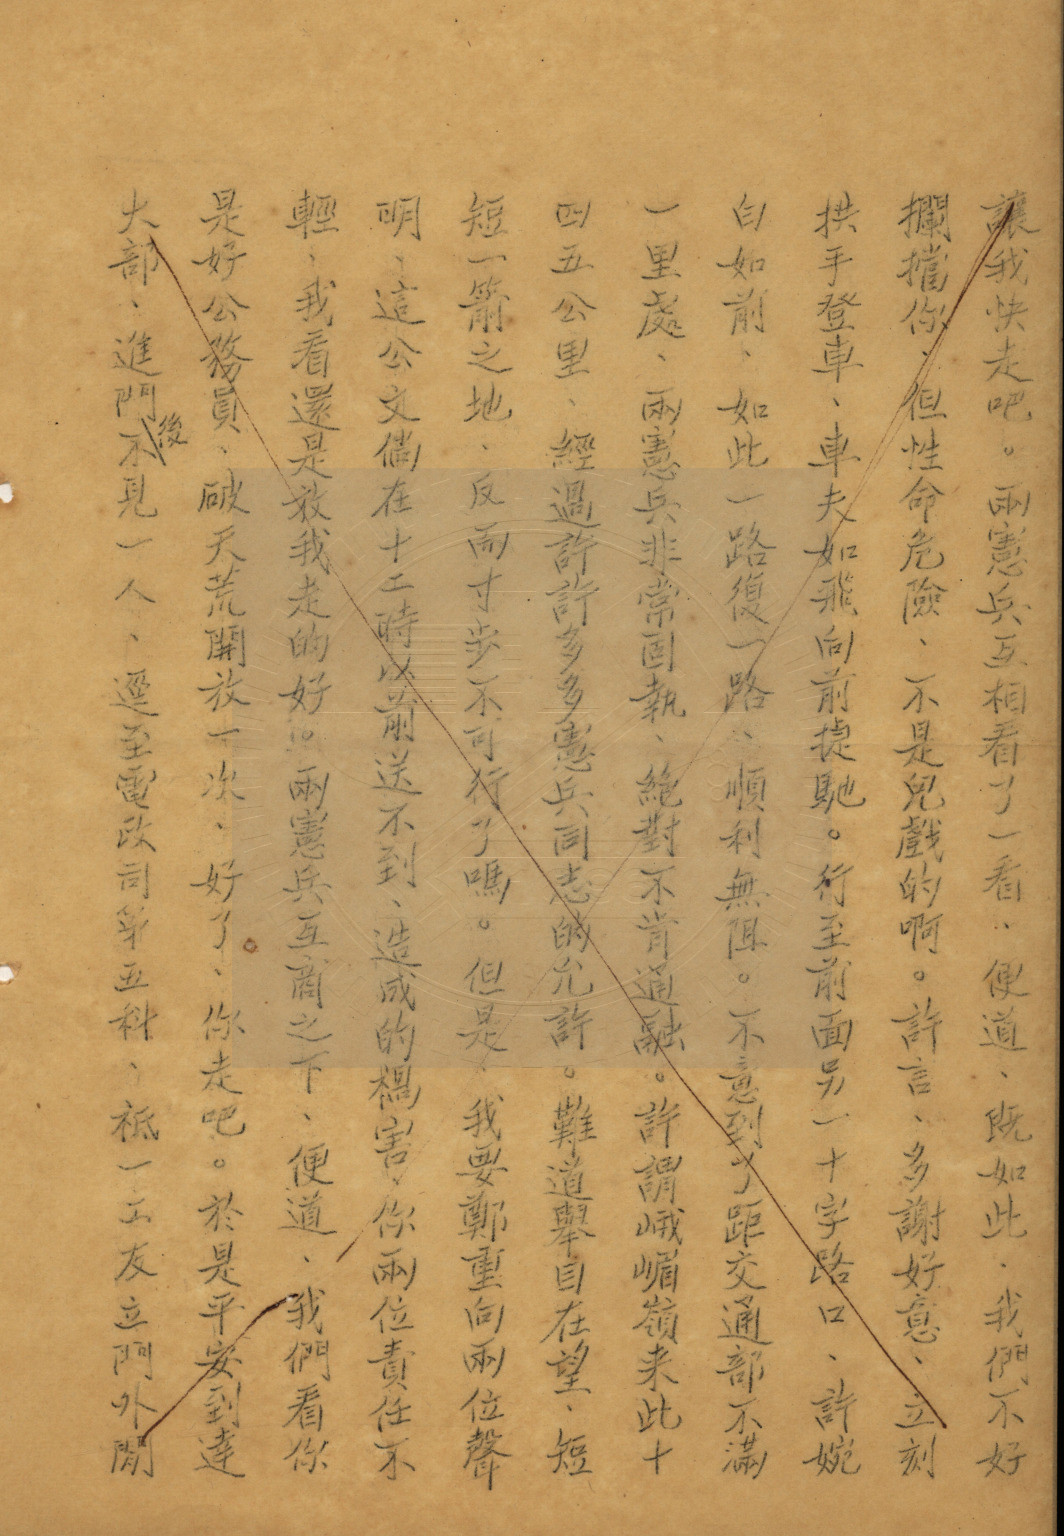 讓我快走吧。兩憲兵互相看了一看..便道、既如此、我們不好
攔擋你、但性命危險、不是兒戲的啊。許言、多謝好意、立刻
拱手登車、車夫如飛向前捷馳。行至前面另一十字路口、許婉
白如前、如此一路復一路、順利無阻。不意到了距交通部不滿
一里處、兩憲兵非常固執、絕對不肯通融。許謂峨嵋嶺来此十
四五公里、經過許許多多憲兵同志的允許。難道舉目在望、短
短一箭之地、反而寸步不可行了嗎。但是、我要鄭重向兩位聲
明、這公文倘在十二時以前送不到、造成的禍害、你兩位責任不
輕、我看還是放我走的好。兩憲兵互商之下、便道、我們看你
是好公務員、破天荒開放一次、好了、你走吧。於是平安到達
大部、進門後不見一人、逕至電政司第五科、祗一工友立門外閒